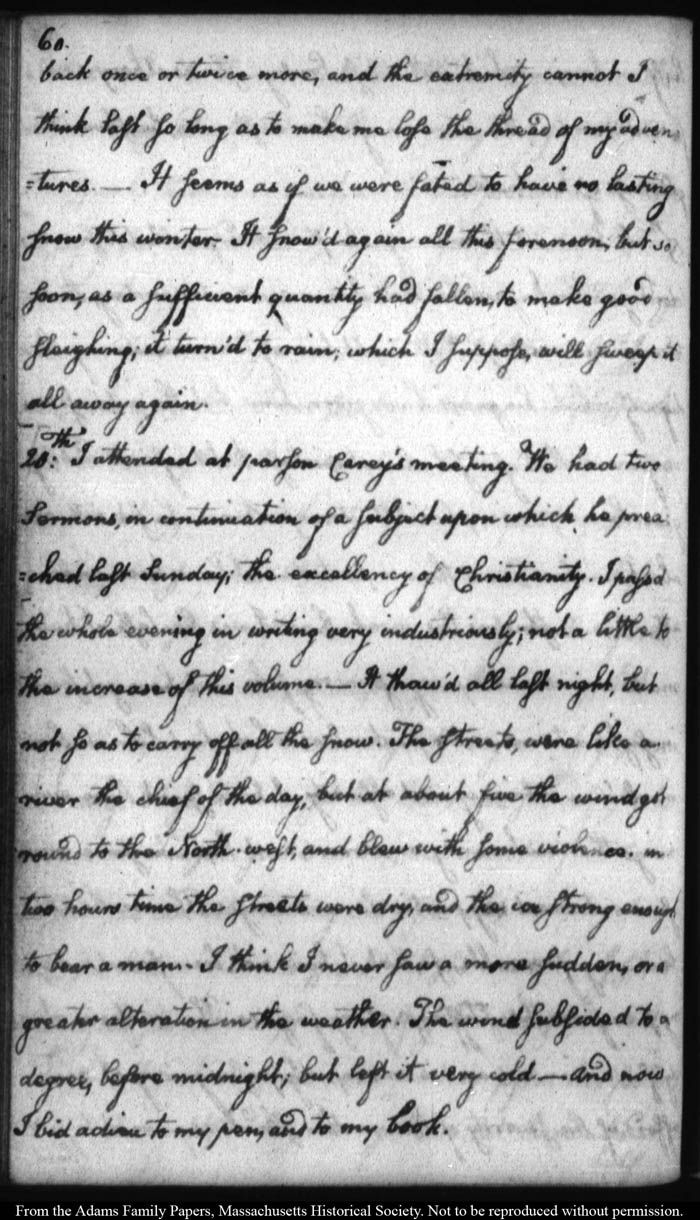 60.
back once or twice more, and the extremity cannot I
think last so long as to make me lose the thread of my adven
=tures. — It seems as if we were fated to have no lasting
snow this winter. It snow'd again all this forenoon, but so
soon, as a sufficient quantity had fallen, to make good
sleighing; it turn'd to rain, which I suppose, will sweep it
all away again.
20:th I attended at parson Carey's meeting. We had two
Sermons, in continuation of a subject upon which he prea
=ched last Sunday; the excellency of Christianity. I pass'd
the whole evening in writing very industriously; not a little to
the increase of this volume. — It thaw'd all last night, but
not so as to carry off all the snow. The streets, were like a
river the chief of the day, but at about five the wind got
round to the North-west, and blew with some violence. in
two hours time the streets were dry, and the ice strong enough
to bear a man. I think I never saw a more sudden, or a
greater alteration in the weather. The wind subsided to a
degree, before midnight; but left it very cold — and now
I bid adieu to my pen, and to my book.
From the Adams Family Papers, Massachusetts Historical Society. Not to be reproduced without permission.